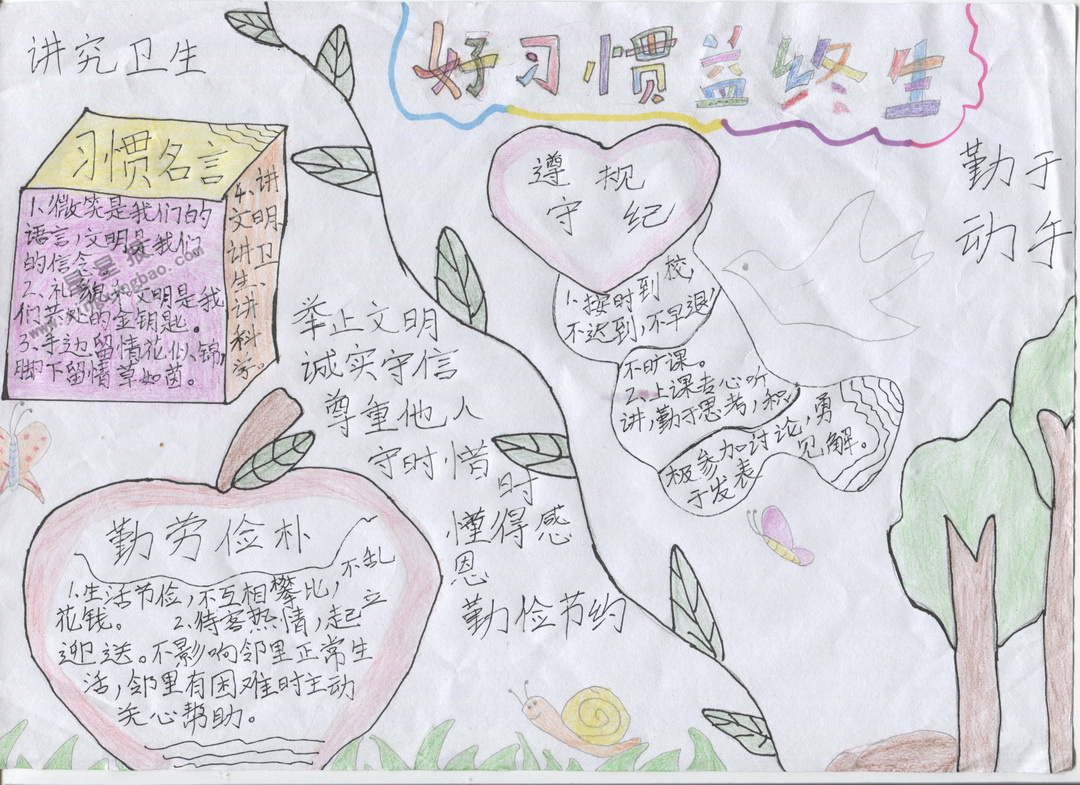 讲究卫生
好习惯益终生
勤于
动手
习惯名言
1、微笑是我们的
语言,文明是我们
的信念。
2、礼貌和文明是我
们共处的金钥匙。
3、手边留情花似锦,
脚下留情草如茵。
4、讲
文明、
讲卫
生、讲
科
学。
遵规
守纪
1、按时到校,
不迟到,不早退,
不旷课。
2、上课专心听
讲,勤于思考,积
极参加讨论,勇
于发表见解。
举止文明
诚实守信
尊重他人
守时惜时
懂得感
恩
勤俭节约
勤劳俭朴
1、生活节俭,不互相攀比,不乱
花钱。 2、待客热情,起立
迎送。不影响邻里正常生
活,邻里有困难时主动
关心帮助。